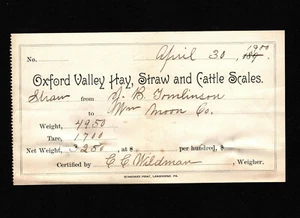 No. April 30, 1900
189
Oxford Valley Hay, Straw and Cattle Scales.
Straw from Y. B. Tomlinson
to Wm Moon Co.
Weight, 4950
Tare, 1700
Net Weight, 3250, at $ per hundred, $
Certified by C C Wildman, Weigher.
STANDARD PRINT, LANGHORNE, PA.